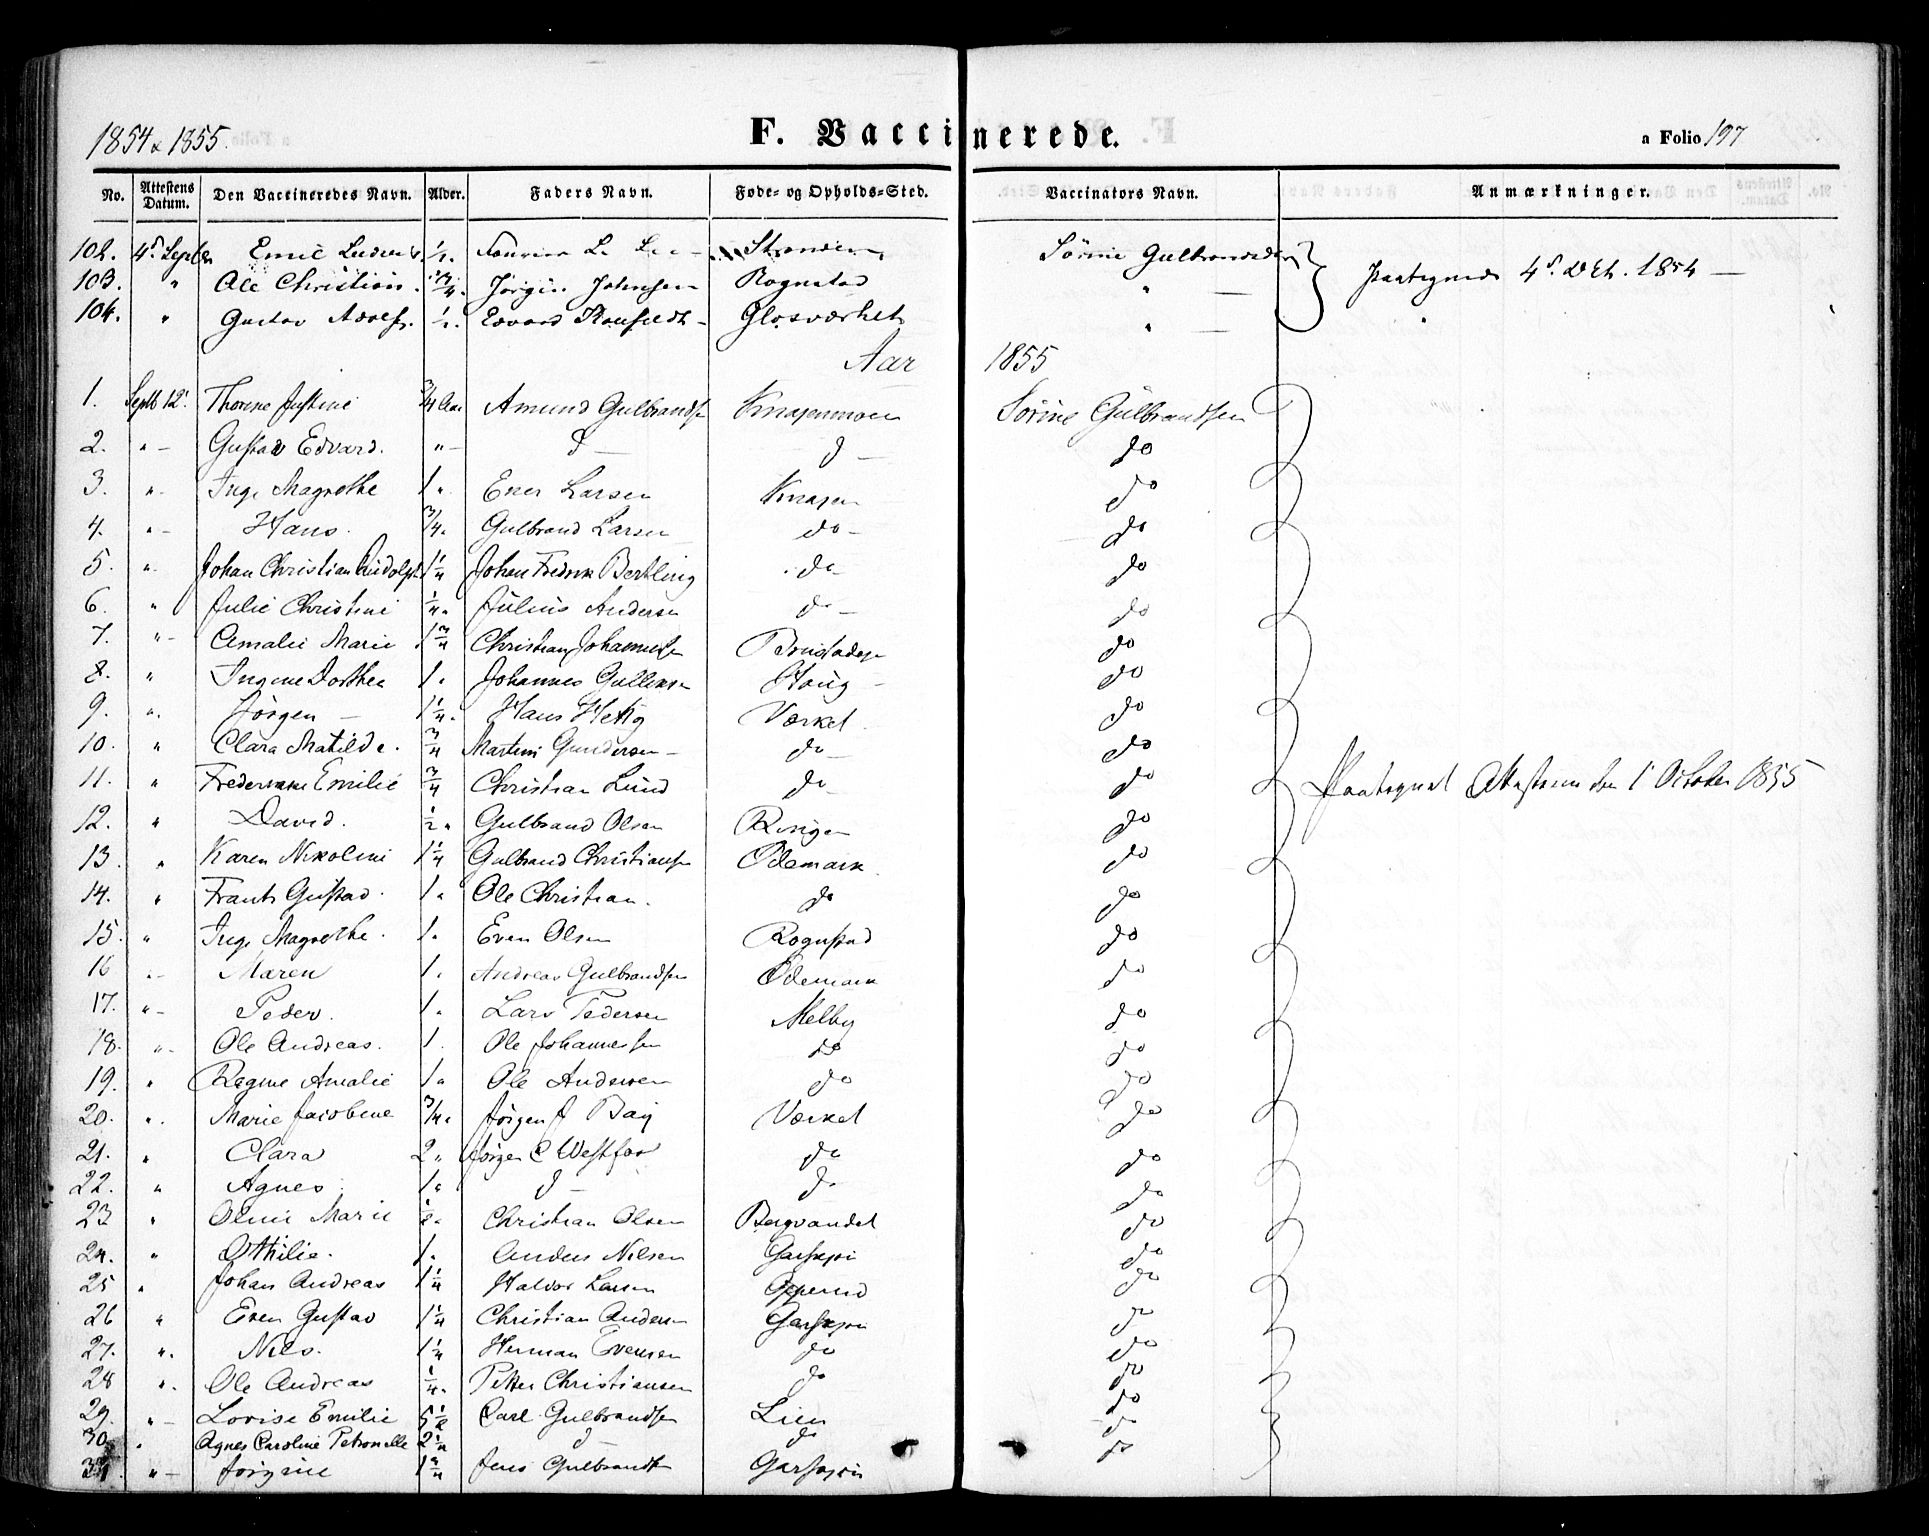 1854 & 1855.
F. Vaccinerede.
a Folio 197
No. Attestens Datum. Den Vaccineredes Navn. Alder. Faders Navn. Føde- og Opholds-Sted. Vaccinators Navn. Anmærkninger.
102. 4d Septbr Emil Ludvig ½. L. Stranden Sörine Gulbrandsen
103. " Ole Christian. ¾. Jörgin Johnsen Rognstad " — 4d Oct. 1854 —
104. " Gustav Adolf. ½. Edvard Glosværket " —
Aar 1855
1. Septb 12' Thorine Justine ¾ Aar Amund Gulbrandsen Knapenmoen Sörine Gulbrandsen
2. " — Gustav Edvard. " — d — d — do
3. " - Inge Magrethe 1 " Ener Larsen Knapen do
4. " - Hans. ¾ " Gulbrand Larsen do - do
5. " - Johan Christian Rudolph 1¼ Johan Fredrik Bertling do - do
6. " Julie Christine ¼ " Julius Andersen do - do
7. " - Amalie Marie 1¾ Christian Johannesen do
8. " Ingine Dorthea 1 " Johannes Gulliksen Houg - do
9. " Jörgen — 1¼ " Hans Værket do
10. " Clara Matilde. ¾ Martin Gundersen — do - do
11. " Frederikke Emilie ¾ Christian Lund do - do Paategnet Attesterne den 1' October 1855
12. " David. ½ " Gulbrand Olsen Ringen do
13. " Karen Nikoline 1¼ Gulbrand Christiansen Ödemark do
14. " Frants Gustav. 1 " Ole Christian. do do
15. " Inge Magrethe. 1 " Even Olsen Rognstad do
16 " - Maren 1 " Andreas Gulbrandsen Ödemark do
17. " - Peder. 1 " Lars Pedersen Melby do
18. " - Ole Andreas. 1 . Ole Johannesen do do
19. " Ragine Amalie 1 " Ole Andersen do do
20. " Marie Jacobine ¾ " Jörgen J Bay Værket do
21. " Clara 2 " Jörgen C do do
22. " Agnes 1 " d — do do
23 " Oline Marie ½ " Christian Olsen Bergvandet do
24. " Othilie. 1 " Anders Nilsen Garsjöi do
25 " Johan Andreas 1¼ Halvor Larsen Opperud do
26 " Even Gustav 1¼ Christian Andersen Garsjöi do
27. " Nils. 1¼ Herman Evensen do do
28 " Ole Andreas ¼ " Petter Christiansen do do
29. " - Lovise Emilie 5½ Carl Gulbrandsen Lien do
30. " Agnes Caroline Petronelle 2¼ d — do do
31. " - Jörgine 1¾ Jens Gulbrandsen Garsjöi do